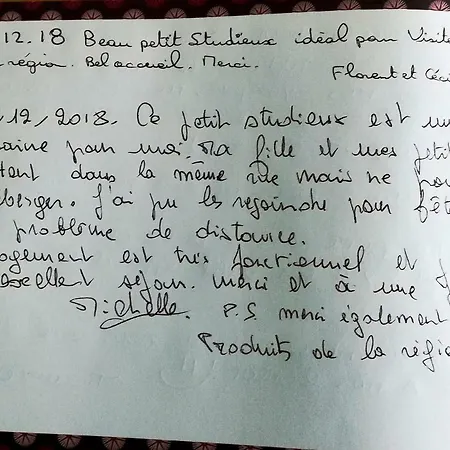 12.18 Beau petit Studieux idéal pour Visite
région. Bel accueil. Merci.
Florent et Céci
12/2018. Ce petit studieux est un
aine pour moi. Ma fille et mes petit
tant dans la même rue mais ne pou
éberger. J'ai pu les rejoindre pour fêt
problème de distance.
ogement est très fonctionnel et j
excellent séjour. Merci et à une
Michelle. P.S. merci également
Produits de la régio